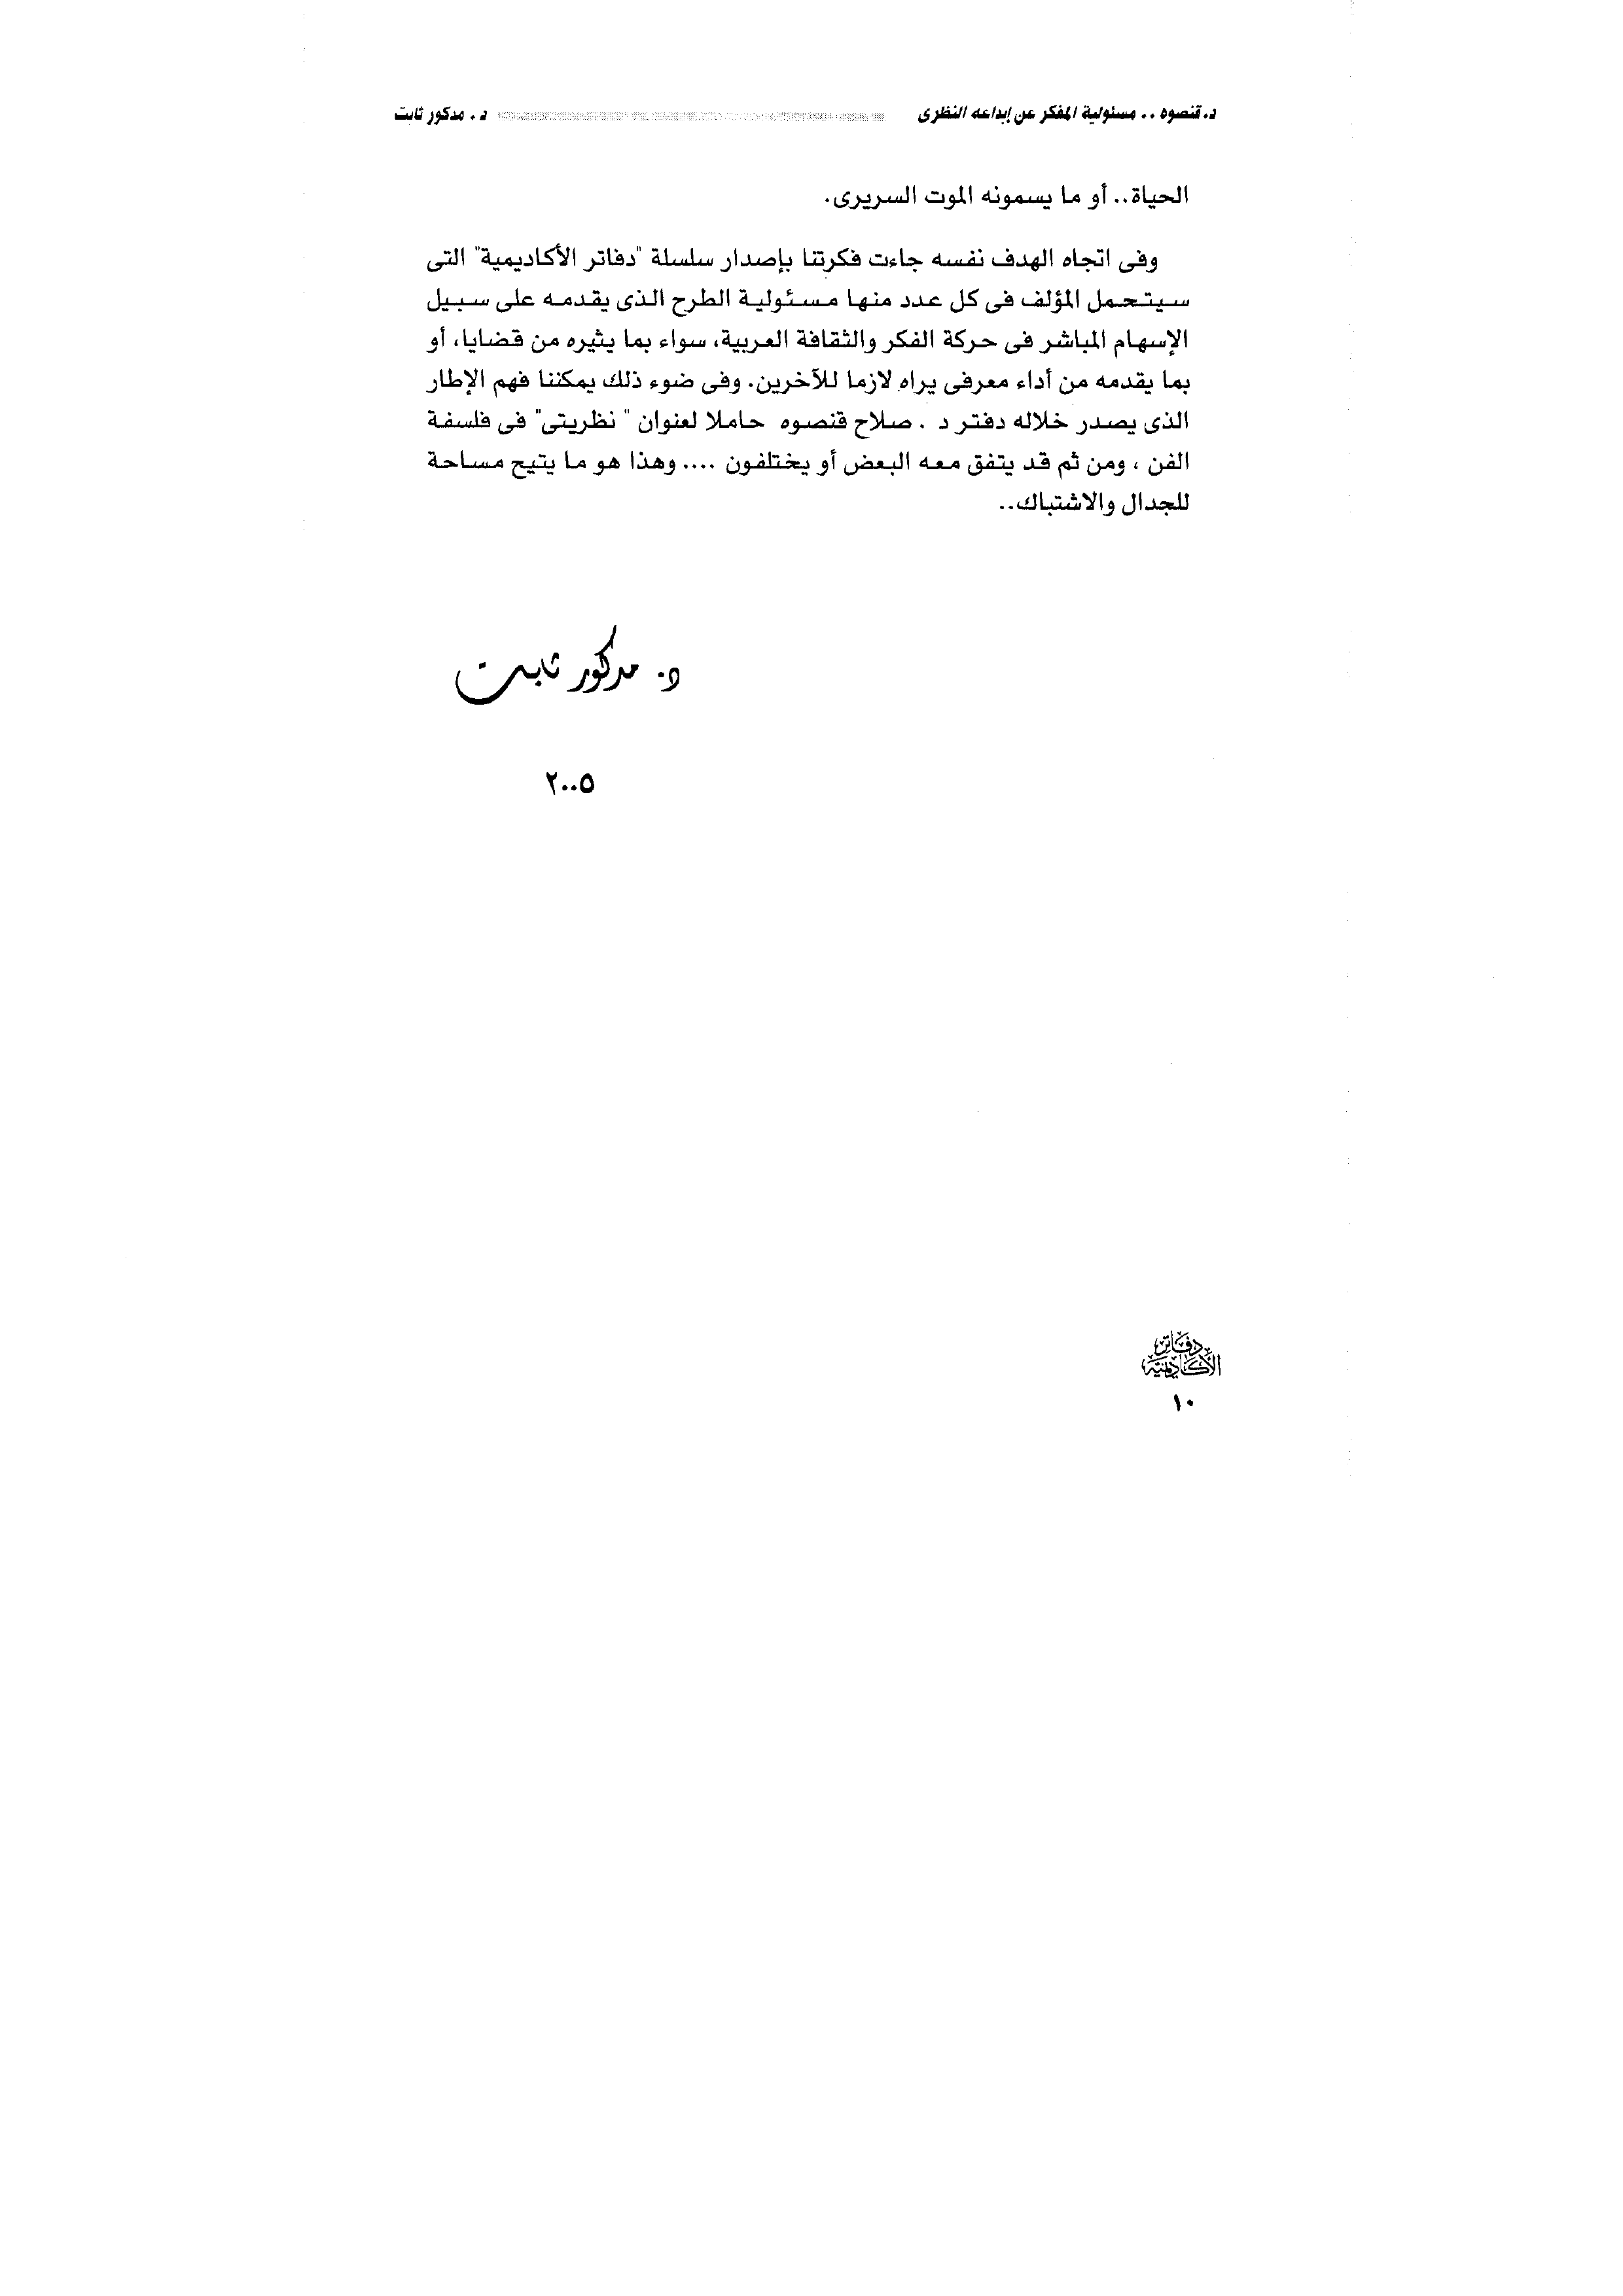 د. قنصوه .. مسئولية المفكر عن إبداعه النظرى د . مدكور ثابت
الحياة.. أو ما يسمونه الموت السريرى.
وفى اتجاه الهدف نفسه جاءت فكرتنا بإصدار سلسلة "دفاتر الأكاديمية" التى
سيتحمل المؤلف فى كل عدد منها مسئولية الطرح الذى يقدمه على سبيل
الإسهام المباشر فى حركة الفكر والثقافة العربية، سواء بما يثيره من قضايا، أو
بما يقدمه من أداء معرفى يراه لازما للآخرين. وفى ضوء ذلك يمكننا فهم الإطار
الذى يصدر خلاله دفتر د . صلاح قنصوه حاملا لعنوان " نظريتى" فى فلسفة
الفن ، ومن ثم قد يتفق معه البعض أو يختلفون .... وهذا هو ما يتيح مساحة
للجدال والاشتباك..
د. مدكور ثابت
٢٠٠٥
دفاتر
الأكاديمية
١٠